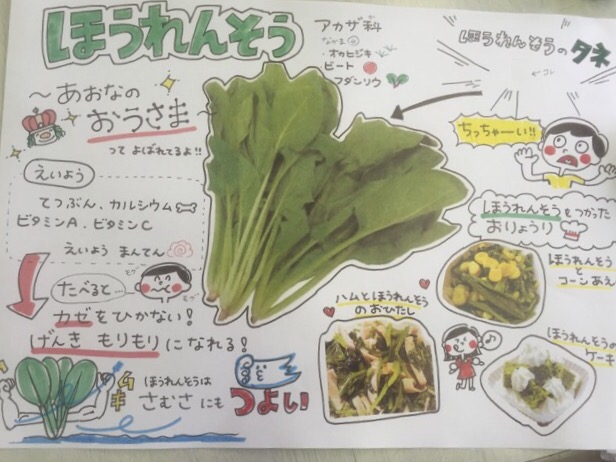 ほうれんそう
アカザ科
なかま
・オカヒジキ
・ビート
フダンソウ
ほうれんそうのタネ
～あおなの
おうさま～
ってよばれてるよ!!
ちっちゃーい!!
えいよう
てつぶん、カルシウム
ビタミンA、ビタミンC
えいよう まんてん
ほうれんそうをつかった
おりょうり
たべると…
モグ
モグ
カゼをひかない！
げんき もりもりになれる！
ほうれんそう
と
コーンあえ
ハムとほうれんそう
のおひたし
ほうれんそうの
ケーキ
ムキ
ほうれんそうは
さむさにも つよい